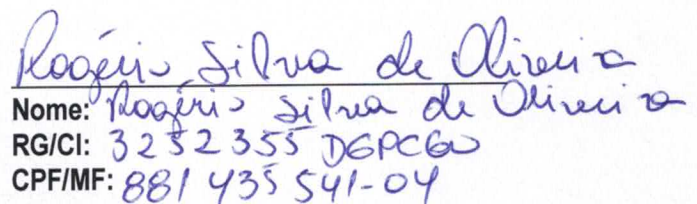 Rogério Silva de Oliveira
Nome: Rogério Silva de Oliveira
RG/CI: 3252355 DGPCGO
CPF/MF: 881 435 541-04